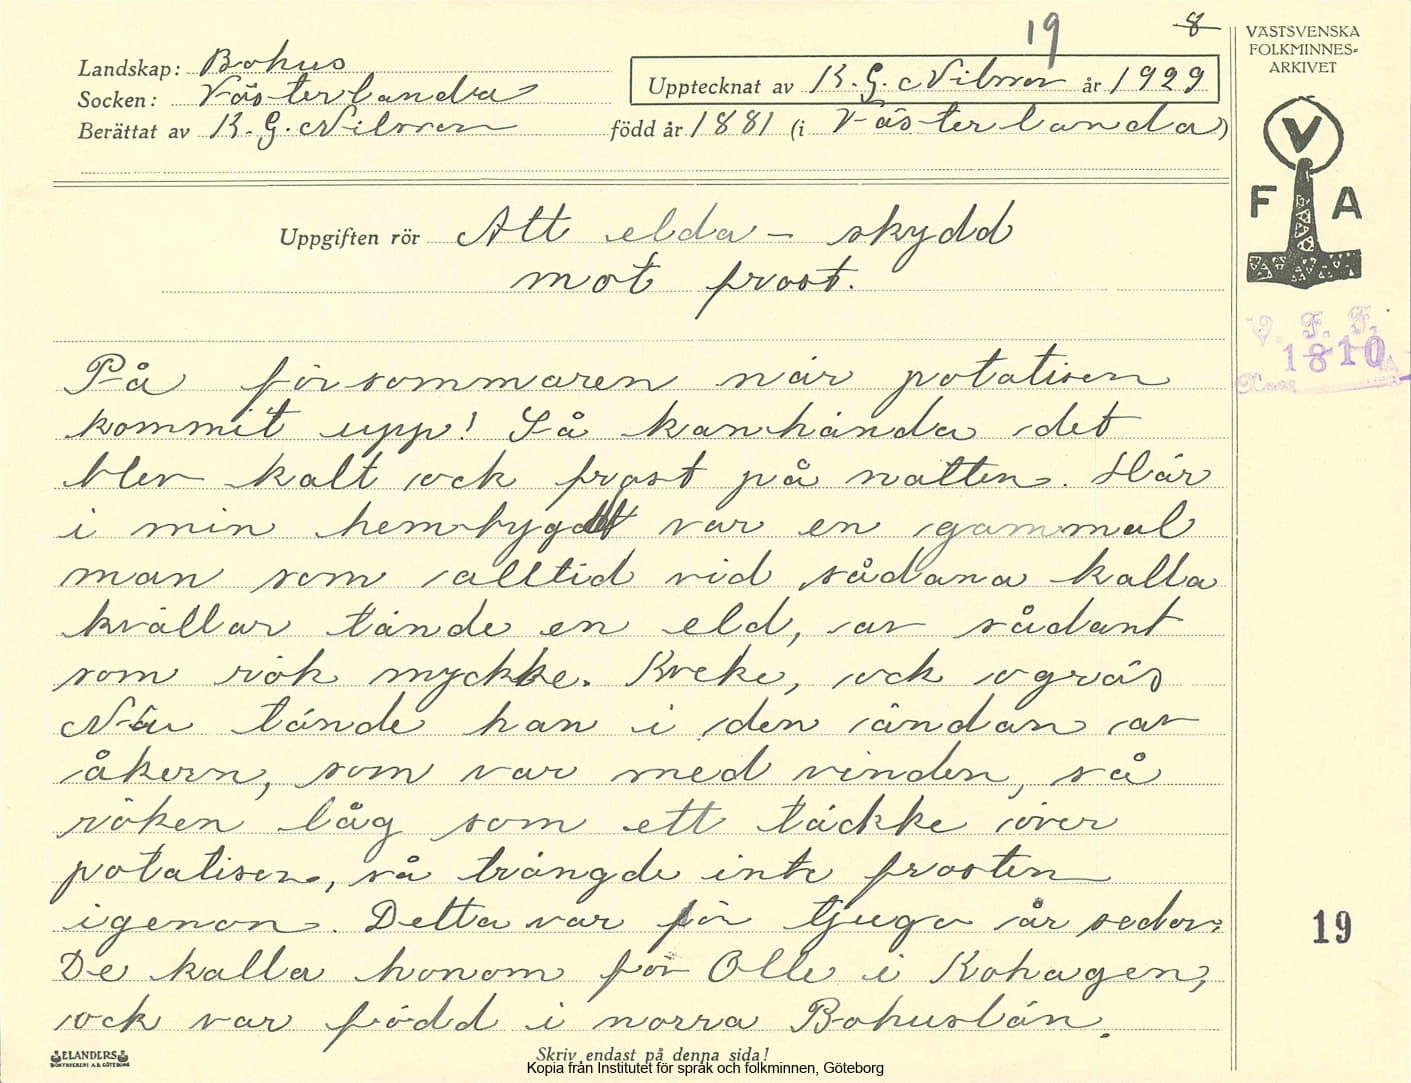 19 8
VÄSTSVENSKA
FOLKMINNES-
ARKIVET
Landskap: Bohus
Upptecknat av K. G. Nilsson år 1929
Socken: Västerlanda
Berättat av K. G. Nilsson född år 1881 (i Västerlanda)
V
F A
Uppgiften rör Att elda – skydd
mot frost.
V. F. F.
1810
På försommaren när potatisen
kommit upp! Så kanhända det
blev kalt ock frost på natten. Här
i min hembygdt var en gammal
man som alltid vid sådana kalla
kvällar tände en eld, av sådant
som rök myckke. Kveke, ock ogräs
Nu tände han i den ändan av
åkern, som var med vinden, så
röken låg som ett täckke över
potatisen, så trängde inte frosten
igenon. Detta var för tjugo år sedan.
De kalla honom för Olle i Kohagen,
ock var född i norra Bohuslän.
19
ELANDERS
BOKTRYCKERI A.B. GÖTEBORG
Skriv endast på denna sida!
Kopia från Institutet för språk och folkminnen, Göteborg